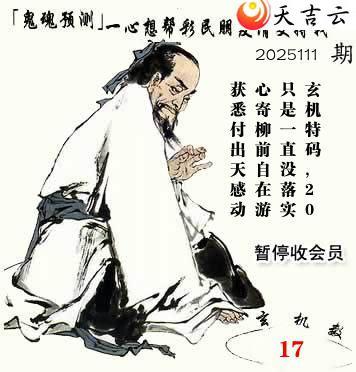 天吉云
「鬼魂预测」一心想帮彩民朋友
2025111 期
玄机特码,20
只是一直没落实
心寄柳前自在游
获悉付出天感动
暂停收会员
玄机数
17